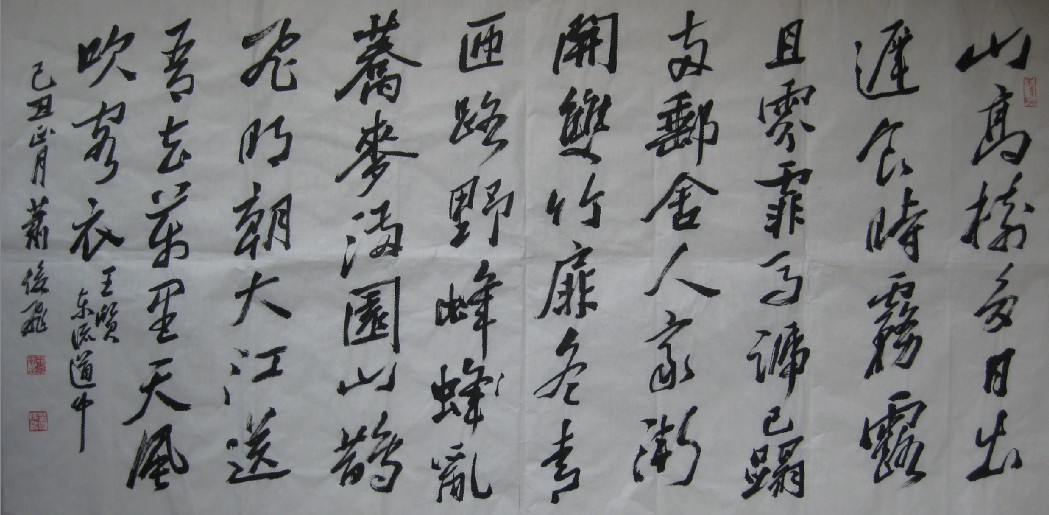 山高樹多日出
遲食時霧露
且雰霏馬蹄已蹋
兩郵舍人家漸
開雙竹扉冬青
匝路野峰蜂亂
蕎麥滿園山鵲
飛明朝大江送
吾去萬里天風
吹客衣
王質
东流道中
己丑正月蕭俊飛